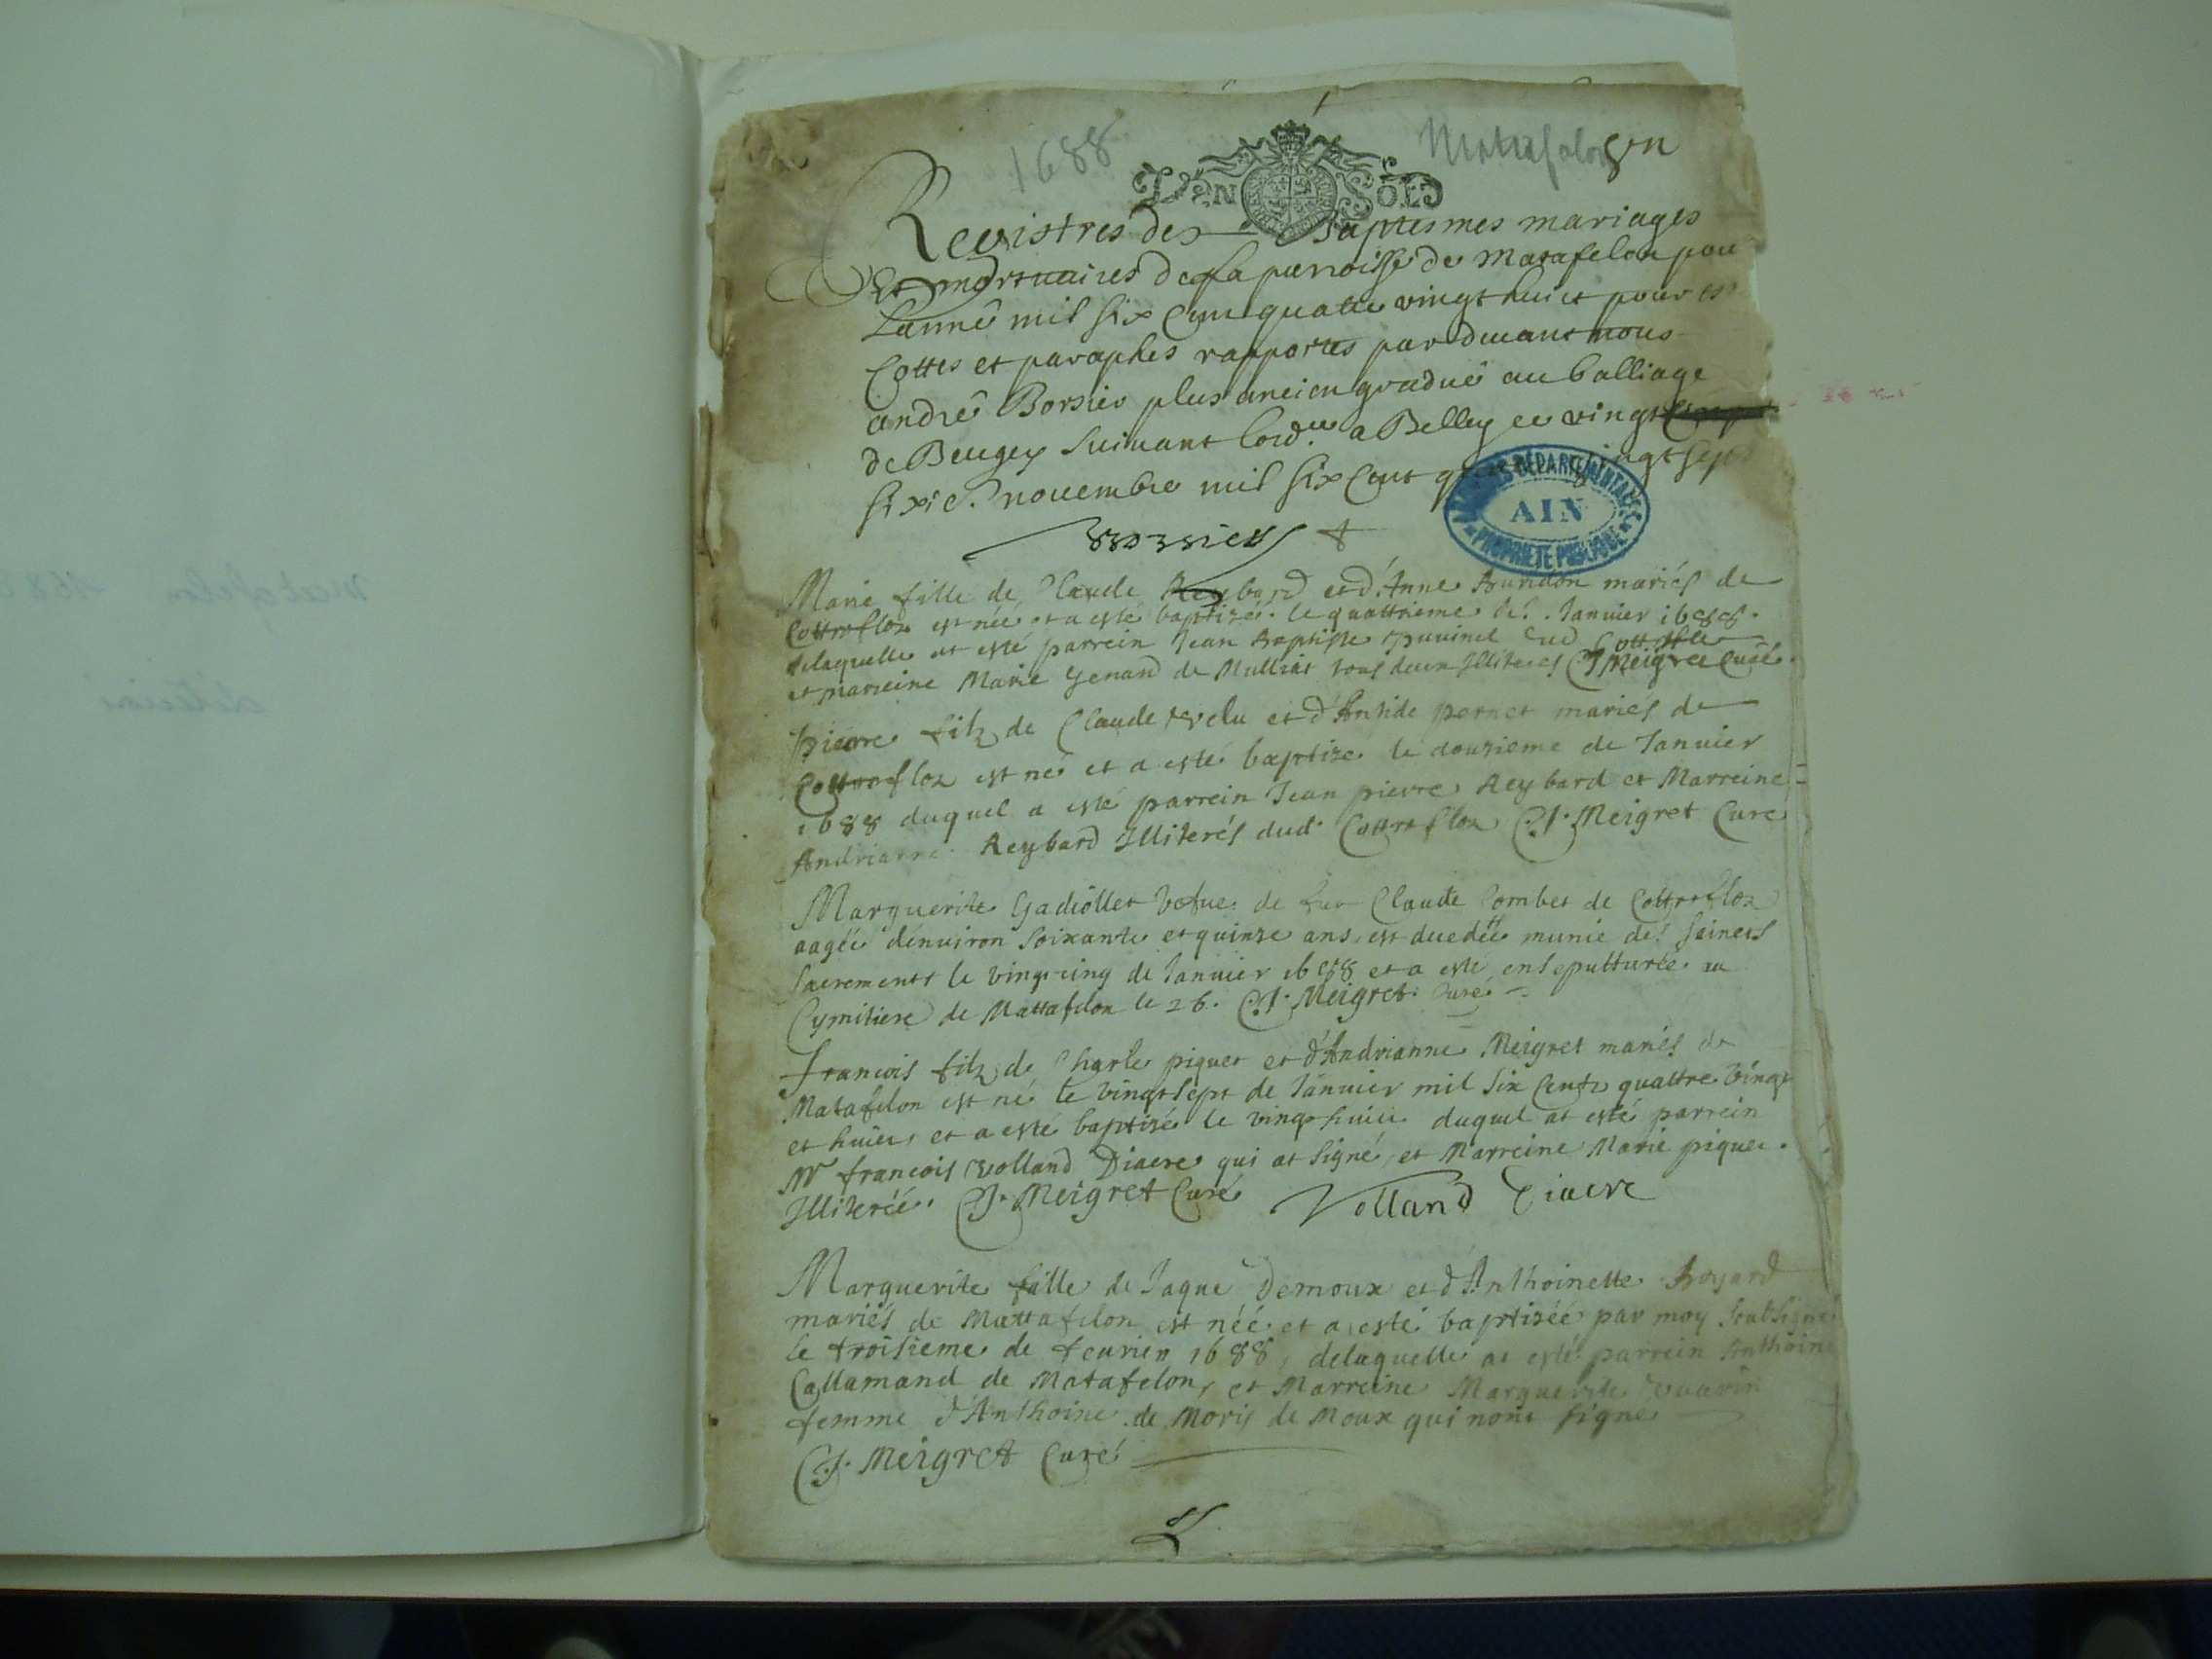 1688
Matafelon
Registres des Baptesmes mariages
et mortuaires de la parroisse de Matafelon pour
Lanné mil six Cent quatre vingt huict pour estre
Cottes et paraphés rapportés pardeuant nous
andré Borsier plus ancien gradué au balliage
de Beugey Suiuant lord.ce a Belley ce vingt
sixie. nouembre mil six Cent quatre vingt sept
ARCHIVES DÉPARTEMENTALES
AIN
PROPRIÉTÉ PUBLIQUE
Borsier
Marie fille de Claude Reybard et d'Anne mariés de
Cottrofloz est néé et a esté baptizéé le quattrieme de Januier 1688.
delaquelle at esté parrein Jean Baptiste dud Cottrofloz
et marreine Marie Genand de Mulliat tous deux Illiterés C.J. Meigret Curé.
Pierre filz de Claude et d'Antide pernet mariés de
Cottrofloz est né et a esté baptizé le douzieme de Januier
1688 duquel a esté parrein Jean pierre Reybard et Marreine
Andrianne Reybard Illiterés dud. Cottrofloz C.J. Meigret Curé
Marguerite Gadiollet Vefue de feu Claude Combet de Cottrofloz
aagéé d'enuiron soixante et quinze ans, est decedéé munie des saincts
Sacrements le vingt cinq de Januier 1688 et a esté ensepulturéé au
Cymitiere de Mattafelon le 26. C.J. Meigret Curé
francois filz de Charle piquet et d'Andrianne Meigret mariés de
Matafelon est né le vingt sept de Januier mil six Cents quattre vingt
et huict, et a esté baptizé le vingt huict duquel at esté parrein
Mr francois Volland Diacre qui at signé, et Marreine Marie piquet.
Illiteréé. C.J. Meigret Curé Volland Diacre
Marguerite fille de Jaque Demoux et d'Anthoinette
mariés de Mattafelon est néé et a esté baptizéé par moy soubsigné
le troisieme de feurier 1688, delaquelle at esté parrein Anthoine
Callamand de Matafelon, et Marreine Marguerite
femme d'Anthoine de Moris de Moux qui n'ont signé
C.J. Meigret Curé